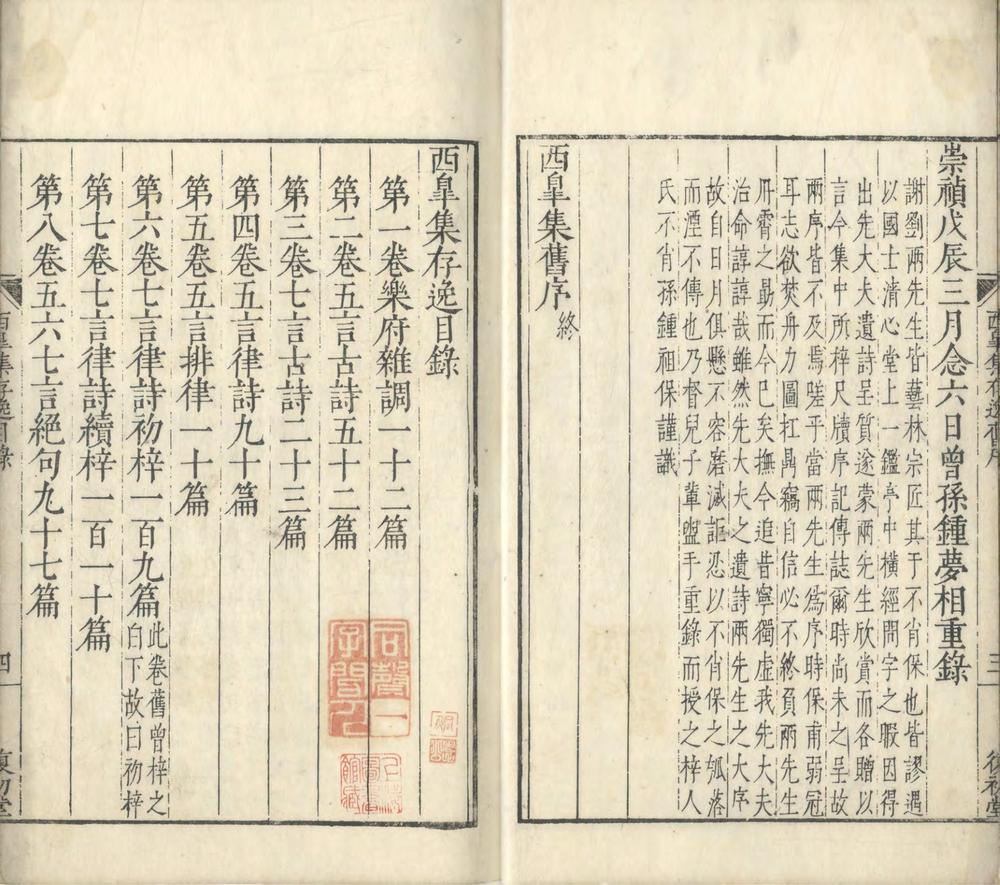 崇禎戊辰三月念六日曾孫鍾夢相重錄
謝劉兩先生皆藝林宗匠其于不肖保也皆謬遇
以國士清心堂上一鑑亭中橫經問字之暇因得
出先大夫遺詩呈質遂蒙兩先生欣賞而各贈以
言今集中所梓尺牘序記傳誌爾時尚未之呈故
兩序皆不及焉嗟乎當兩先生為序時保甫弱冠
耳志欲焚舟力圖扛鼎竊自信必不終負兩先生
冊霄之勗而今已矣撫今追昔寧獨虛我先大夫
治命諄諄哉雖然先大夫之遺詩兩先生之大序
故自日月俱懸不容磨滅詎忍以不肖保之瓠落
而湮不傳也乃督兒子軰盥手重錄而授之梓人
氏不肖孫鍾祖保謹識
西臯集舊序終
西臯集存逸舊序
三
復初堂
西臯集存逸目錄
第一卷樂府雜調一十二篇
第二卷五言古詩五十二篇
第三卷七言古詩二十三篇
第四卷五言律詩九十篇
第五卷五言排律一十篇
第六卷七言律詩初梓一百九篇此卷舊曾梓之
白下故曰初梓
第七卷七言律詩續梓一百一十篇
第八卷五六七言絕句九十七篇
西臯集存逸目錄
四
復初堂